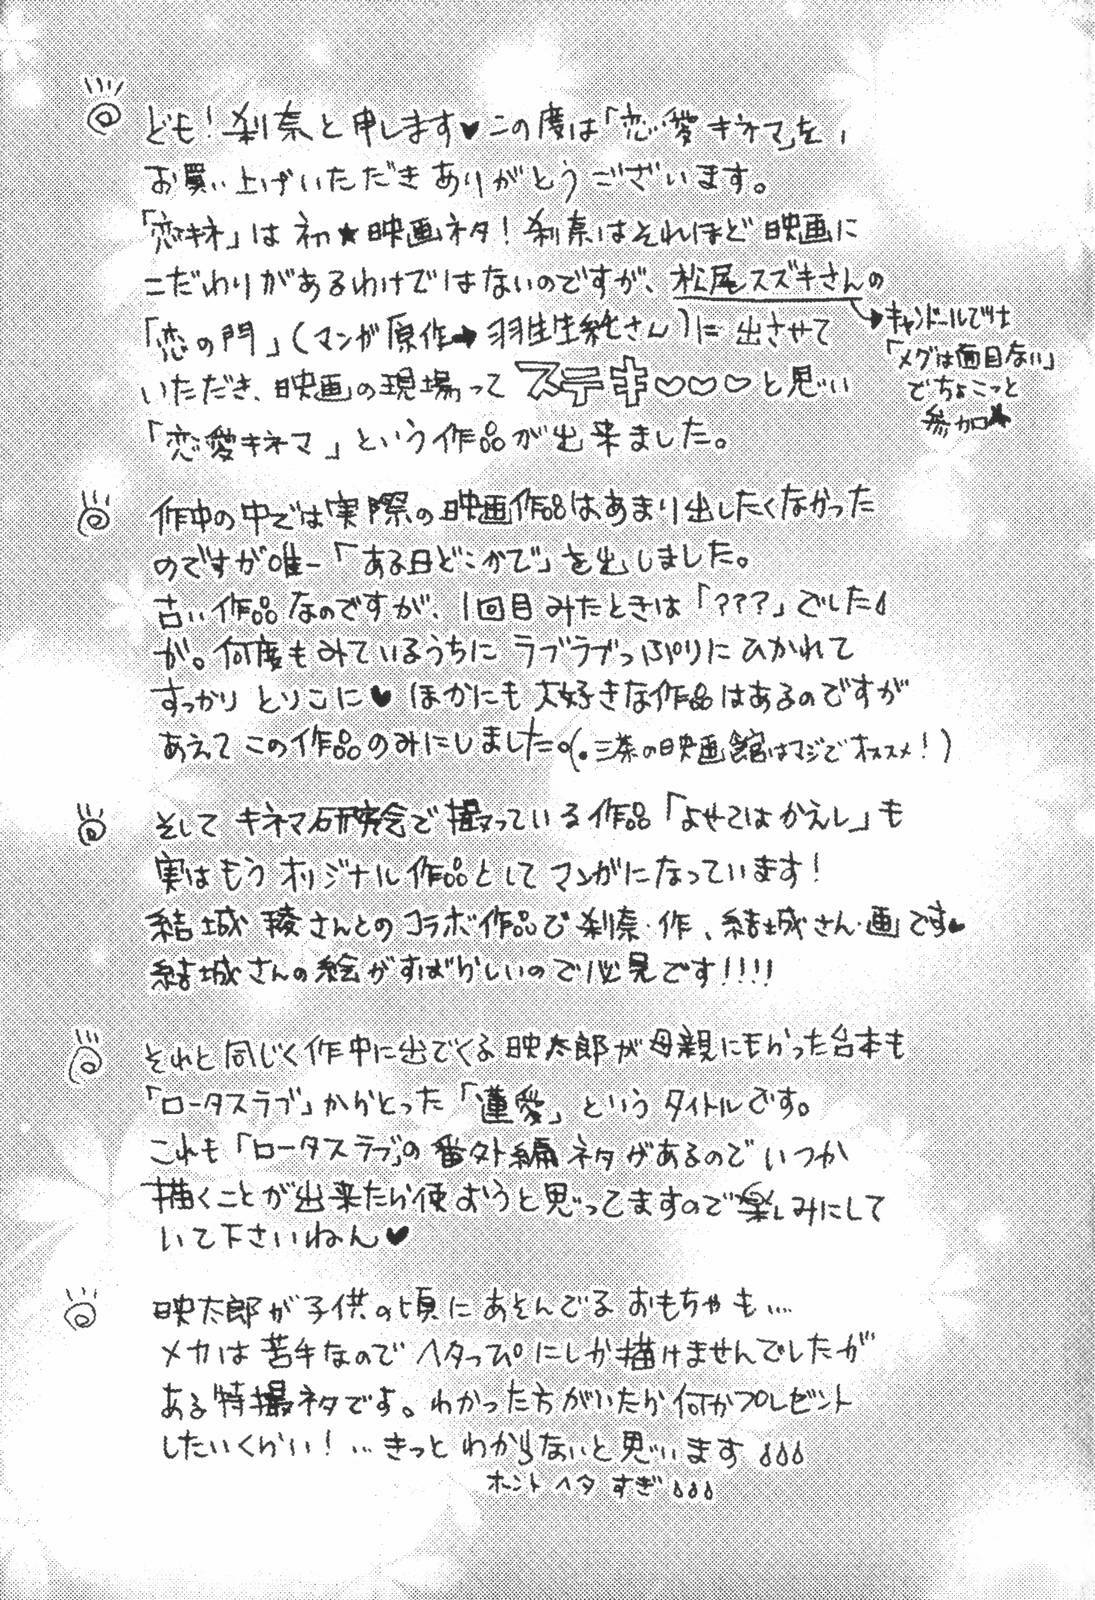 ども!刹奈と申します♥この度は「恋愛キネマ」を、
お買い上げいただきありがとうございます。
「恋キネ」は初★映画ネタ!刹奈はそれほど映画に
こだわりがあるわけではないのですが、松尾スズキさんの
「恋の門」(マンガ原作➡羽生生純さん)に出させて
いただき、映画の現場ってステキ♡♡♡と思い
「恋愛キネマ」という作品が出来ました。
キャンドールでは
「メグは面目ない」
でちょこっと
参加★
作中の中では実際の映画作品はあまり出したくなかった
のですが唯一「ある日どこかで」を出しました。
古い作品なのですが、1回目みたときは「???」でした
が。何度もみているうちにラブラブっぷりにひかれて
すっかりとりこに♥ほかにも大好きな作品はあるのですが
あえてこの作品のみにしました。(三茶の映画館はマジでオススメ!)
そしてキネマ研究会で撮っている作品「よせてはかえし」も
実はもうオリジナル作品としてマンガになっています!
結城稜さんとのコラボ作品で刹奈・作、結城さん・画です♥
結城さんの絵がすばらしいので必見です!!!!
それと同じく作中に出てくる映太郎が母親にもらった台本も
「ロータスラブ」からとった「蓮愛」というタイトルです。
これも「ロータスラブ」の番外編ネタがあるのでいつか
描くことが出来たら使おうと思ってますので楽しみにして
いて下さいねん♥
映太郎が子供の頃にあそんでるおもちゃも…
メカは苦手なのでヘタっぴにしか描けませんでしたが
ある特撮ネタです。わかった方がいたら何かプレゼント
したいくらい!…きっとわからないと思います
ホントヘタすぎ